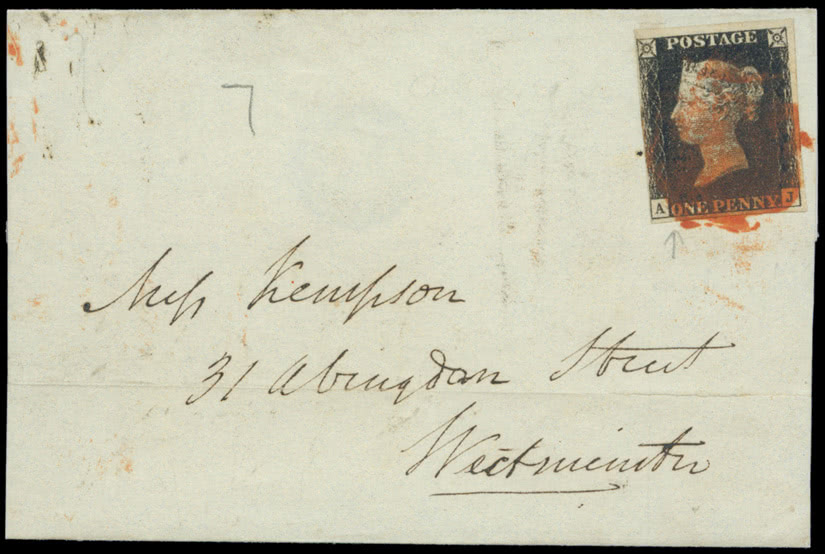 POSTAGE
A ONE PENNY J
7
Miss Kempson
31 Abingdon Street
Westminster